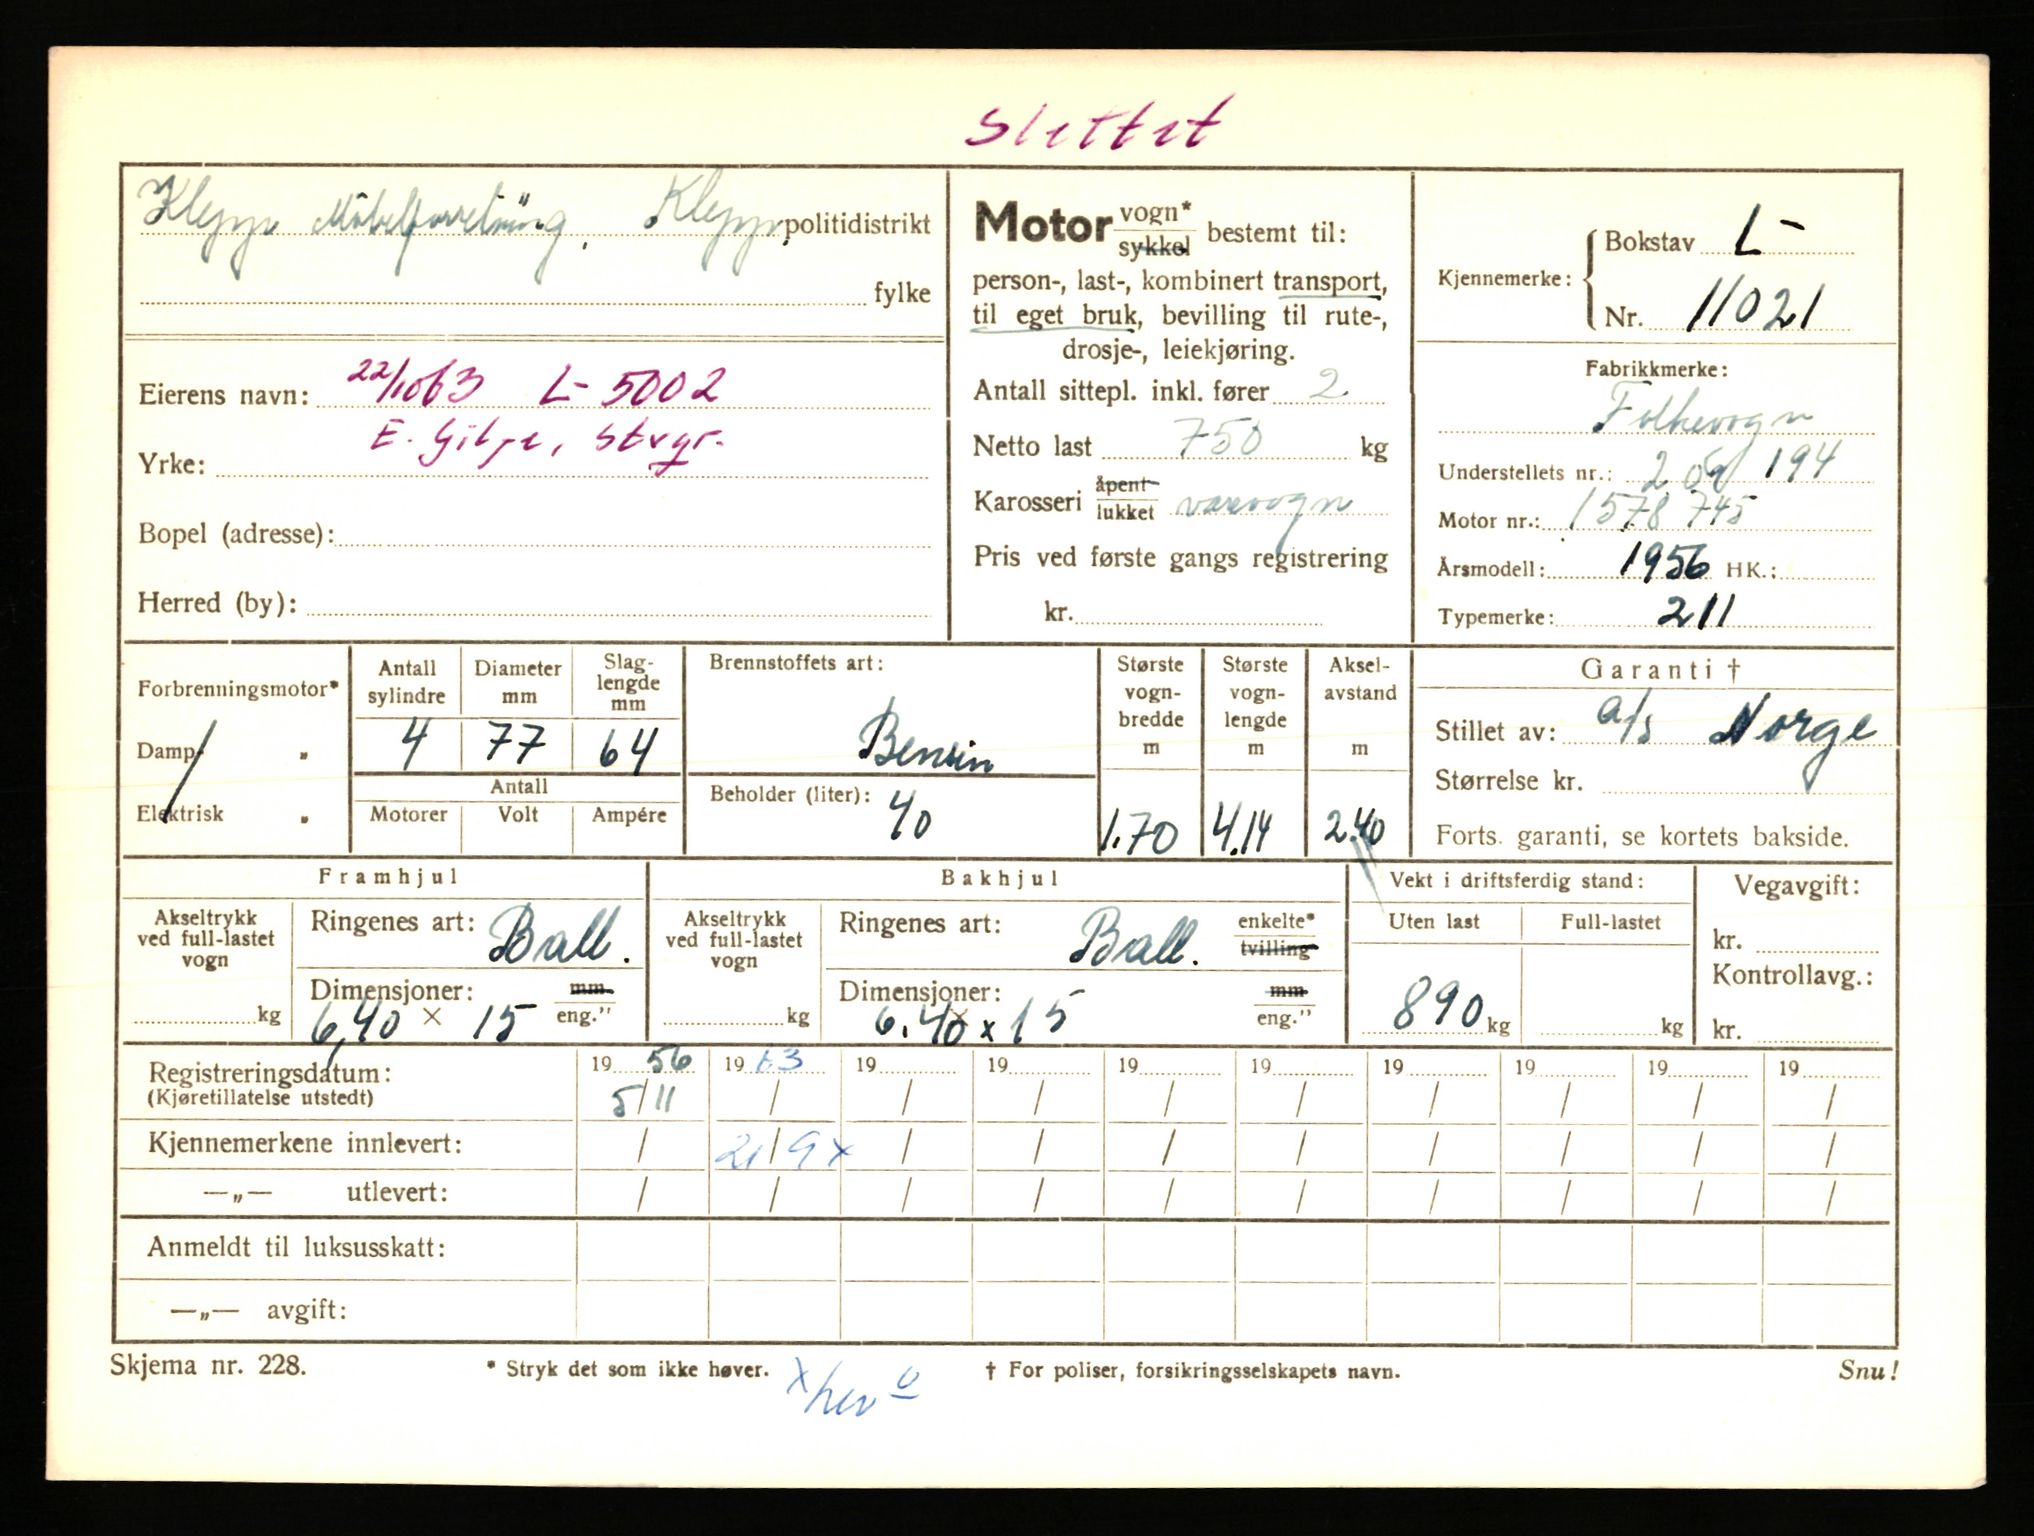 Slettet
Klepp Møbelforretning, Klepp politidistrikt
fylke
Eierens navn: 22/1063 L-5002
E. Gilje, Stvgr.
Yrke:
Bopel (adresse):
Herred (by):
Motor vogn* sykkel bestemt til:
person-, last-, kombinert transport,
til eget bruk, bevilling til rute-,
drosje-, leiekjøring.
Antall sittepl. inkl. fører 2
Netto last 750 kg
Karosseri åpent lukket varevogn
Pris ved første gangs registrering
kr.
Kjennemerke: Bokstav L-
Nr. 11021
Fabrikkmerke:
Folkevogn
Understellets nr.: 209 194
Motor nr.: 1578 745
Årsmodell: 1956 HK.:
Typemerke: 211
Forbrenningsmotor*
Damp- "
Elektrisk "
Antall sylindre Diameter mm Slag-lengde mm
4 77 64
Antall
Motorer Volt Ampére
Brennstoffets art:
Bensin
Beholder (liter): 40
Største vogn-bredde m
1.70
Største vogn-lengde m
4.14
Aksel-avstand m
2.40
Garanti †
Stillet av: a/s Norge
Størrelse kr.
Forts. garanti, se kortets bakside.
Framhjul
Akseltrykk ved full-lastet vogn
kg
Ringenes art: Ball.
Dimensjoner: mm eng."
6,40 × 15
Bakhjul
Akseltrykk ved full-lastet vogn
kg
Ringenes art: Ball. enkelte* tvilling
Dimensjoner: mm eng."
6.40 x 15
Vekt i driftsferdig stand:
Uten last Full-lastet
890 kg kg
Vegavgift:
kr.
Kontrollavg.:
kr.
Registreringsdatum: 19 56 19 63 19 19 19 19 19 19 19 19
(Kjøretillatelse utstedt) 5/11 / / / / / / / / /
Kjennemerkene innlevert: / 21/9 x / / / / / / / /
—„— utlevert: / / / / / / / / / /
Anmeldt til luksusskatt:
—„— avgift:
Skjema nr. 228. * Stryk det som ikke høver. † For poliser, forsikringsselskapets navn. Snu!